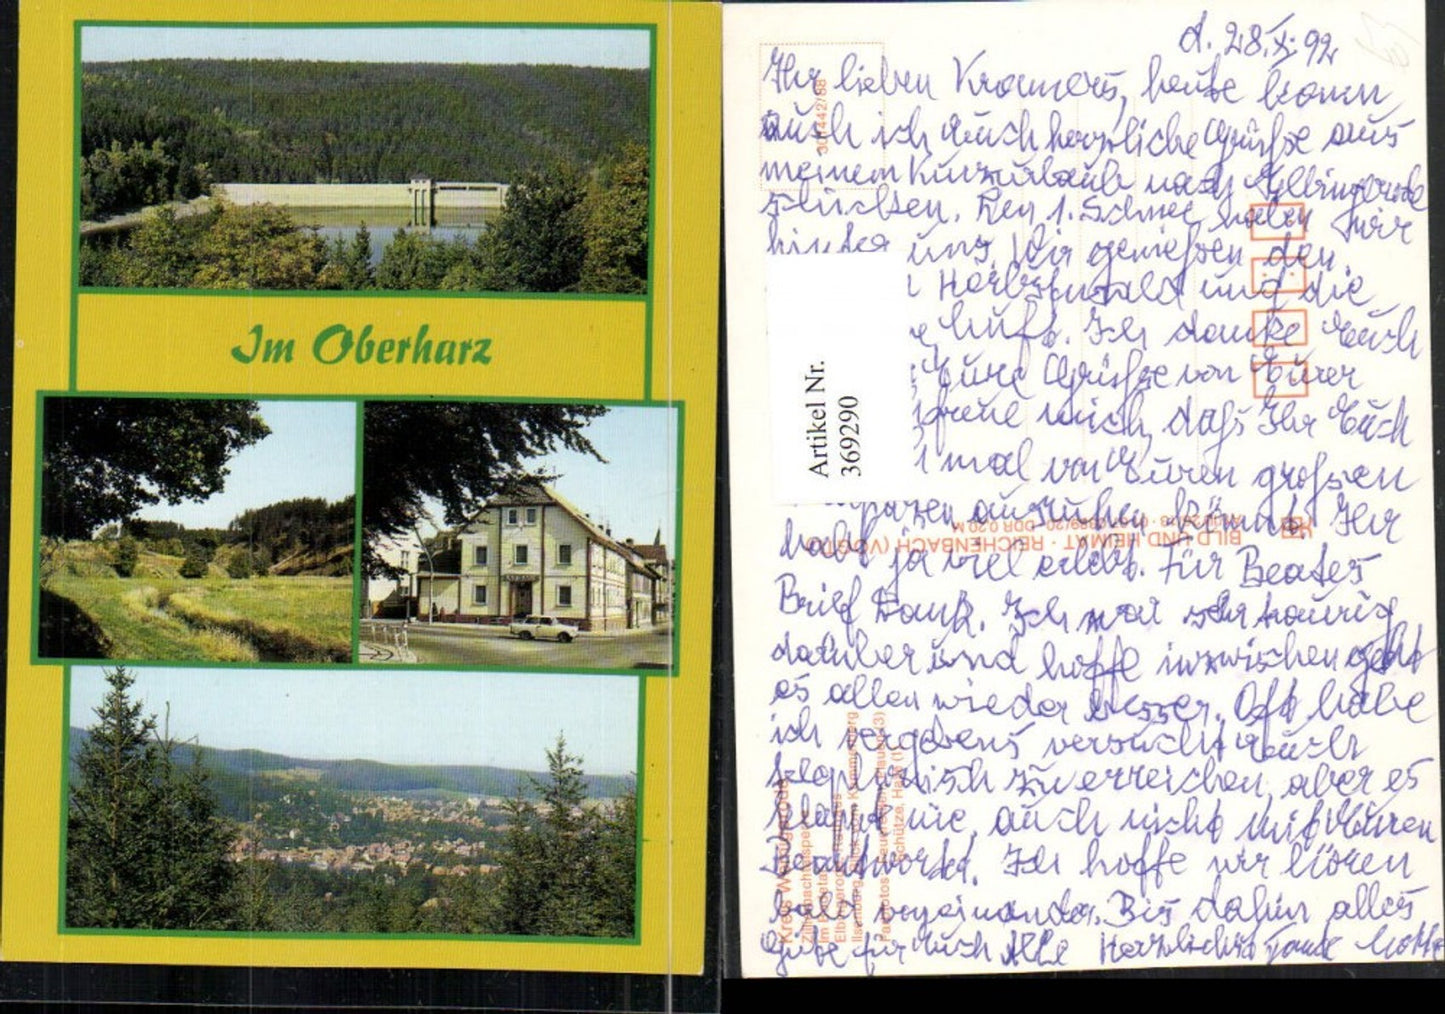 Im Oberharz
d. 28.X.92
Ihr lieben Kramers, heute kann
auch ich Euch herzliche Grüße aus
meinem Kurzurlaub nach Elbingerode
schicken. Den 1. Schnee haben wir
hinter uns. Wir genießen den
Herbstwald und die
Luft. Ich danke Euch
Eure Grüße von Eurer
freue mich, daß Ihr Euch
mal von Euren großen
ausruhen könnt. Ihr
habt ja viel erlebt. Für Beates
Brief Dank. Ich war sehr traurig
darüber und hoffe inzwischen geht
es allen wieder besser. Oft habe
ich vergebens versucht Euch
telefonisch zu erreichen, aber es
klappt nie, auch nicht mit Euren
Ich hoffe wir hören
bald voneinander. Bis dahin alles
Gute für Euch Alle Herzlichst Tante
Artikel Nr.
369290
BILD UND HEIMAT · REICHENBACH (VOGTL)
DDR 0,20 M